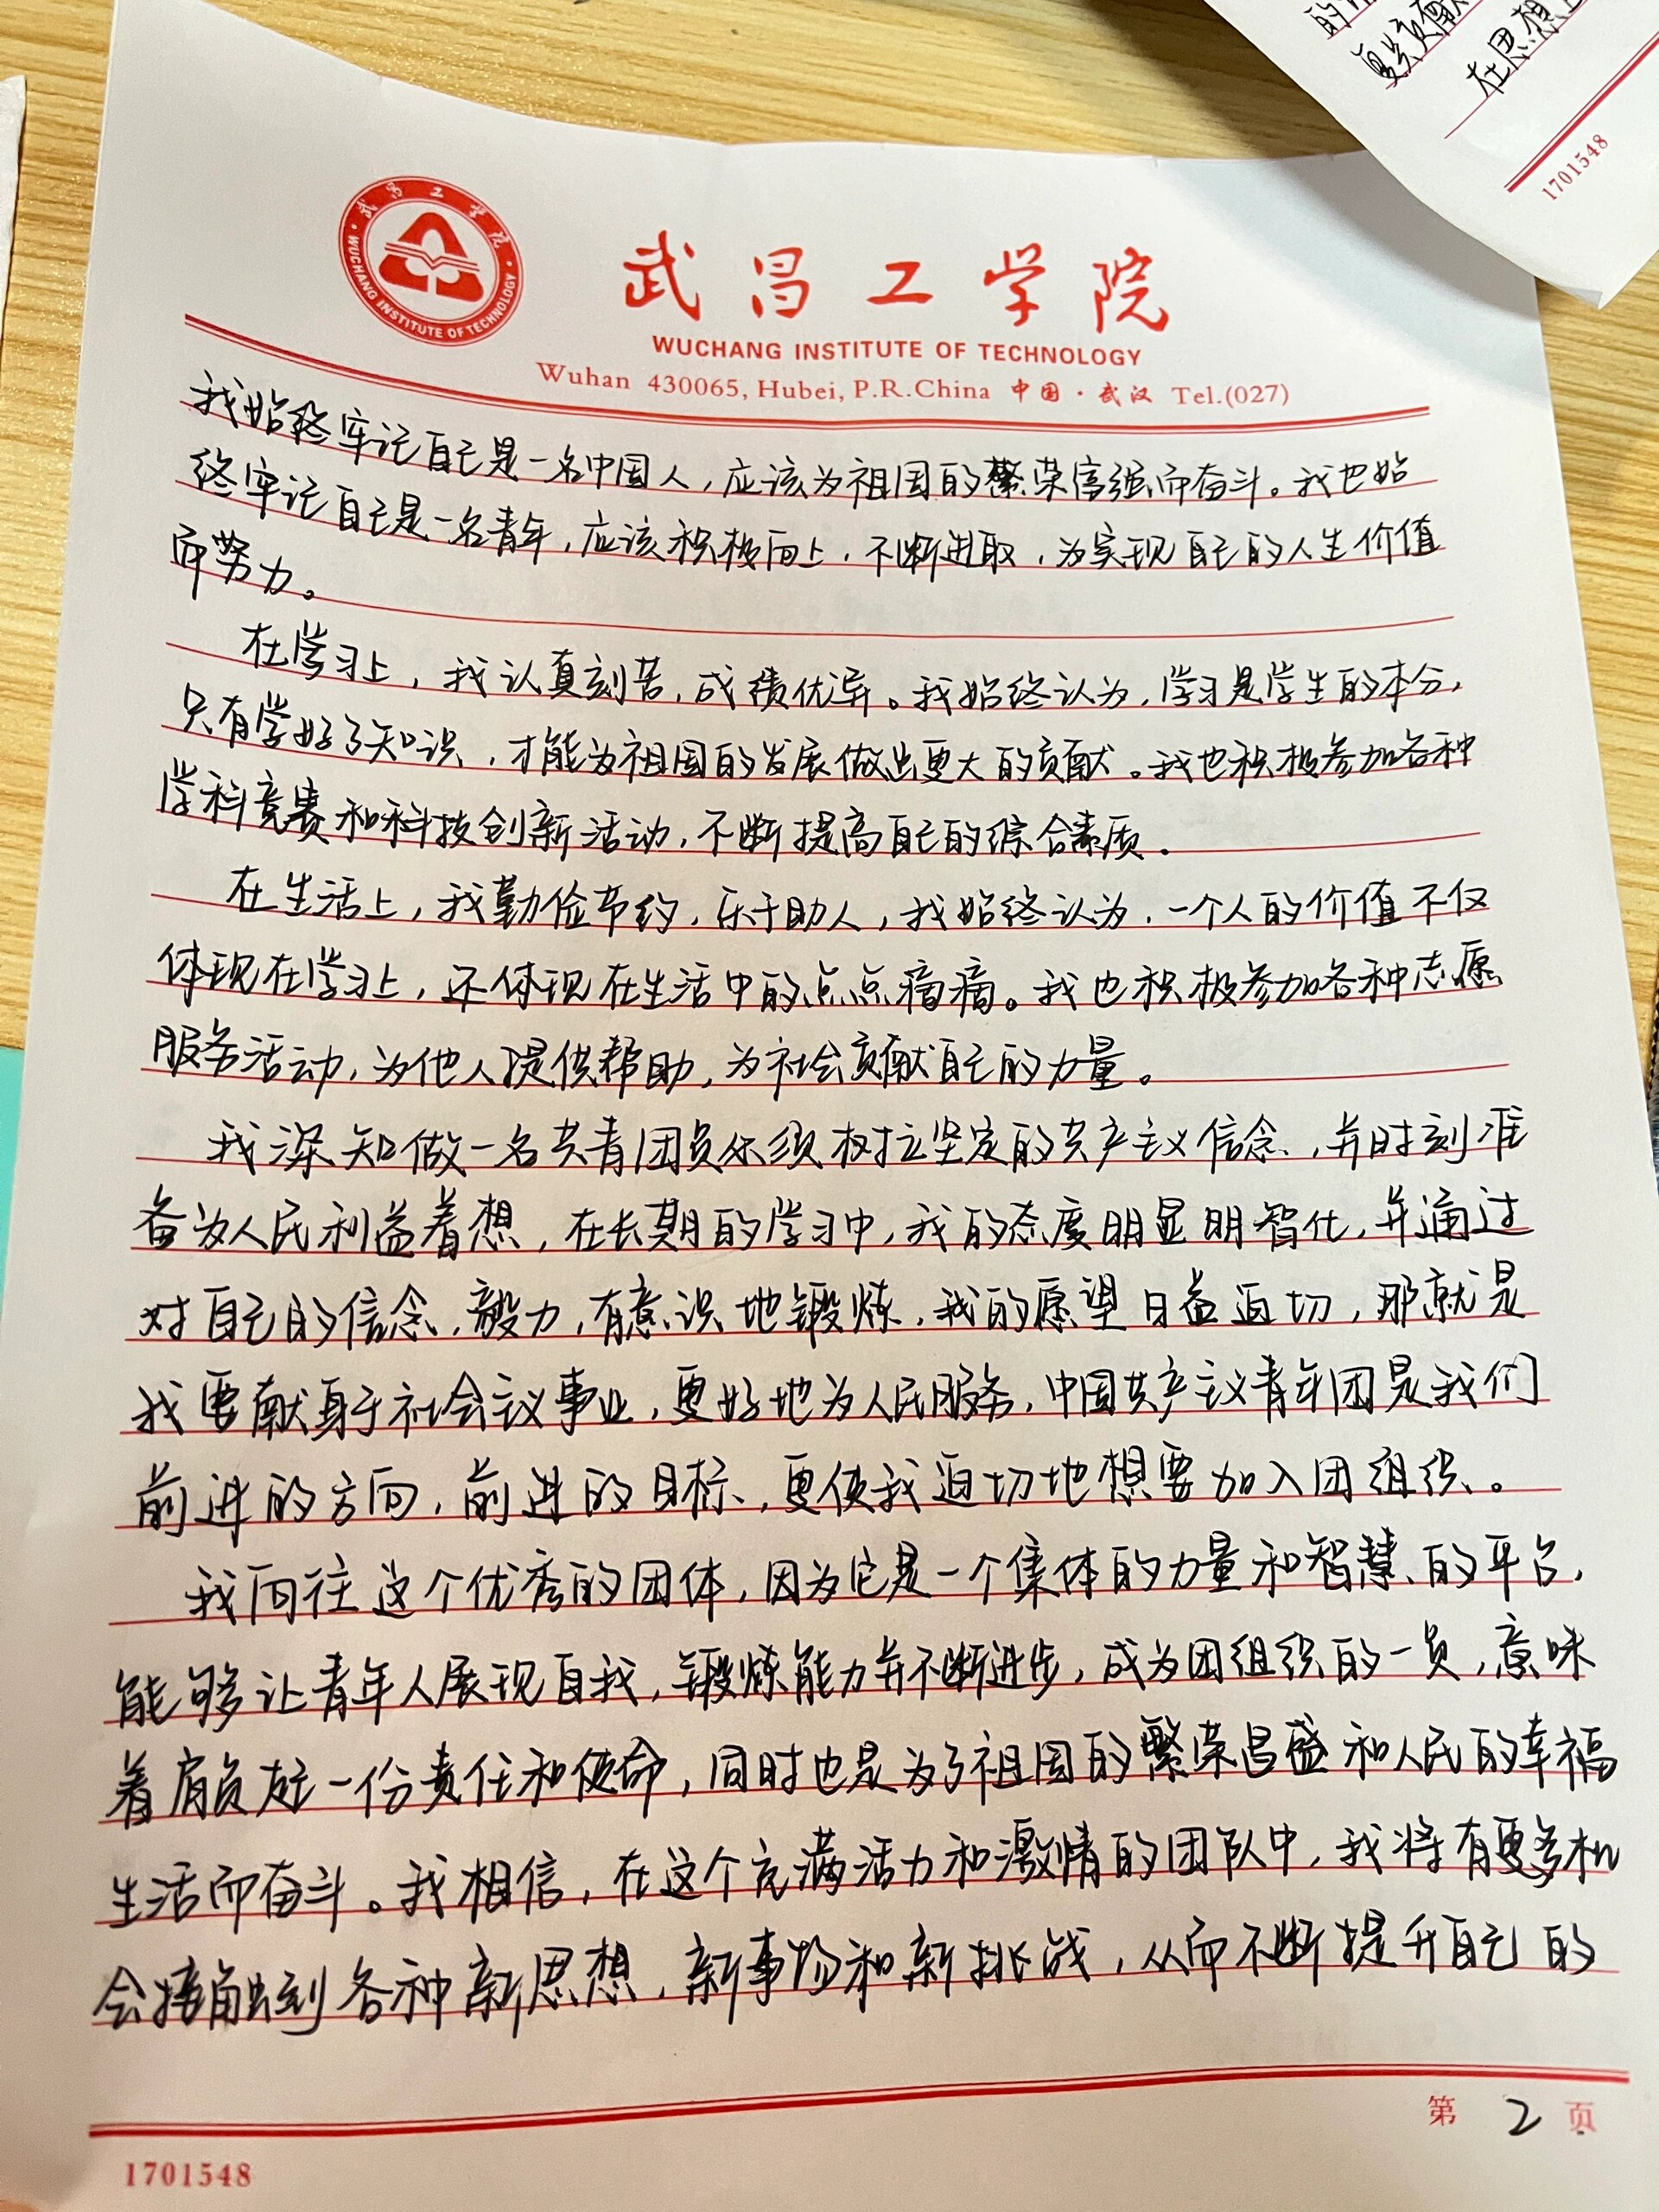 武昌工学院
WUCHANG INSTITUTE OF TECHNOLOGY
武昌工学院
WUCHANG INSTITUTE OF TECHNOLOGY
Wuhan 430065, Hubei, P.R.China 中国·武汉 Tel.(027)
我始终牢记自己是一名中国人,应该为祖国的繁荣富强而奋斗。我也始
终牢记自己是一名青年,应该积极向上,不断进取,为实现自己的人生价值
而努力。
在学习上,我认真刻苦,成绩优异。我始终认为,学习是学生的本分,
只有学好了知识,才能为祖国的发展做出更大的贡献。我也积极参加各种
学科竞赛和科技创新活动,不断提高自己的综合素质。
在生活上,我勤俭节约,乐于助人,我始终认为,一个人的价值不仅
体现在学习上,还体现在生活中的点点滴滴。我也积极参加各种志愿
服务活动,为他人提供帮助,为社会贡献自己的力量。
我深知做一名共青团员必须树立坚定的共产主义信念,并时刻准
备为人民利益着想,在长期的学习中,我的态度明显明智化,并通过
对自己的信念,毅力,有意识地锻炼,我的愿望日益迫切,那就是
我要献身于社会主义事业,更好地为人民服务,中国共产主义青年团是我们
前进的方向,前进的目标,更使我迫切地想要加入团组织。
我向往这个优秀的团体,因为它是一个集体的力量和智慧的平台,
能够让青年人展现自我,锻炼能力并不断进步,成为团组织的一员,意味
着肩负起一份责任和使命,同时也是为了祖国的繁荣昌盛和人民的幸福
生活而奋斗。我相信,在这个充满活力和激情的团队中,我将有更多机
会接触到各种新思想,新事物和新挑战,从而不断提升自己的
第2页
1701548
在思想
1701548